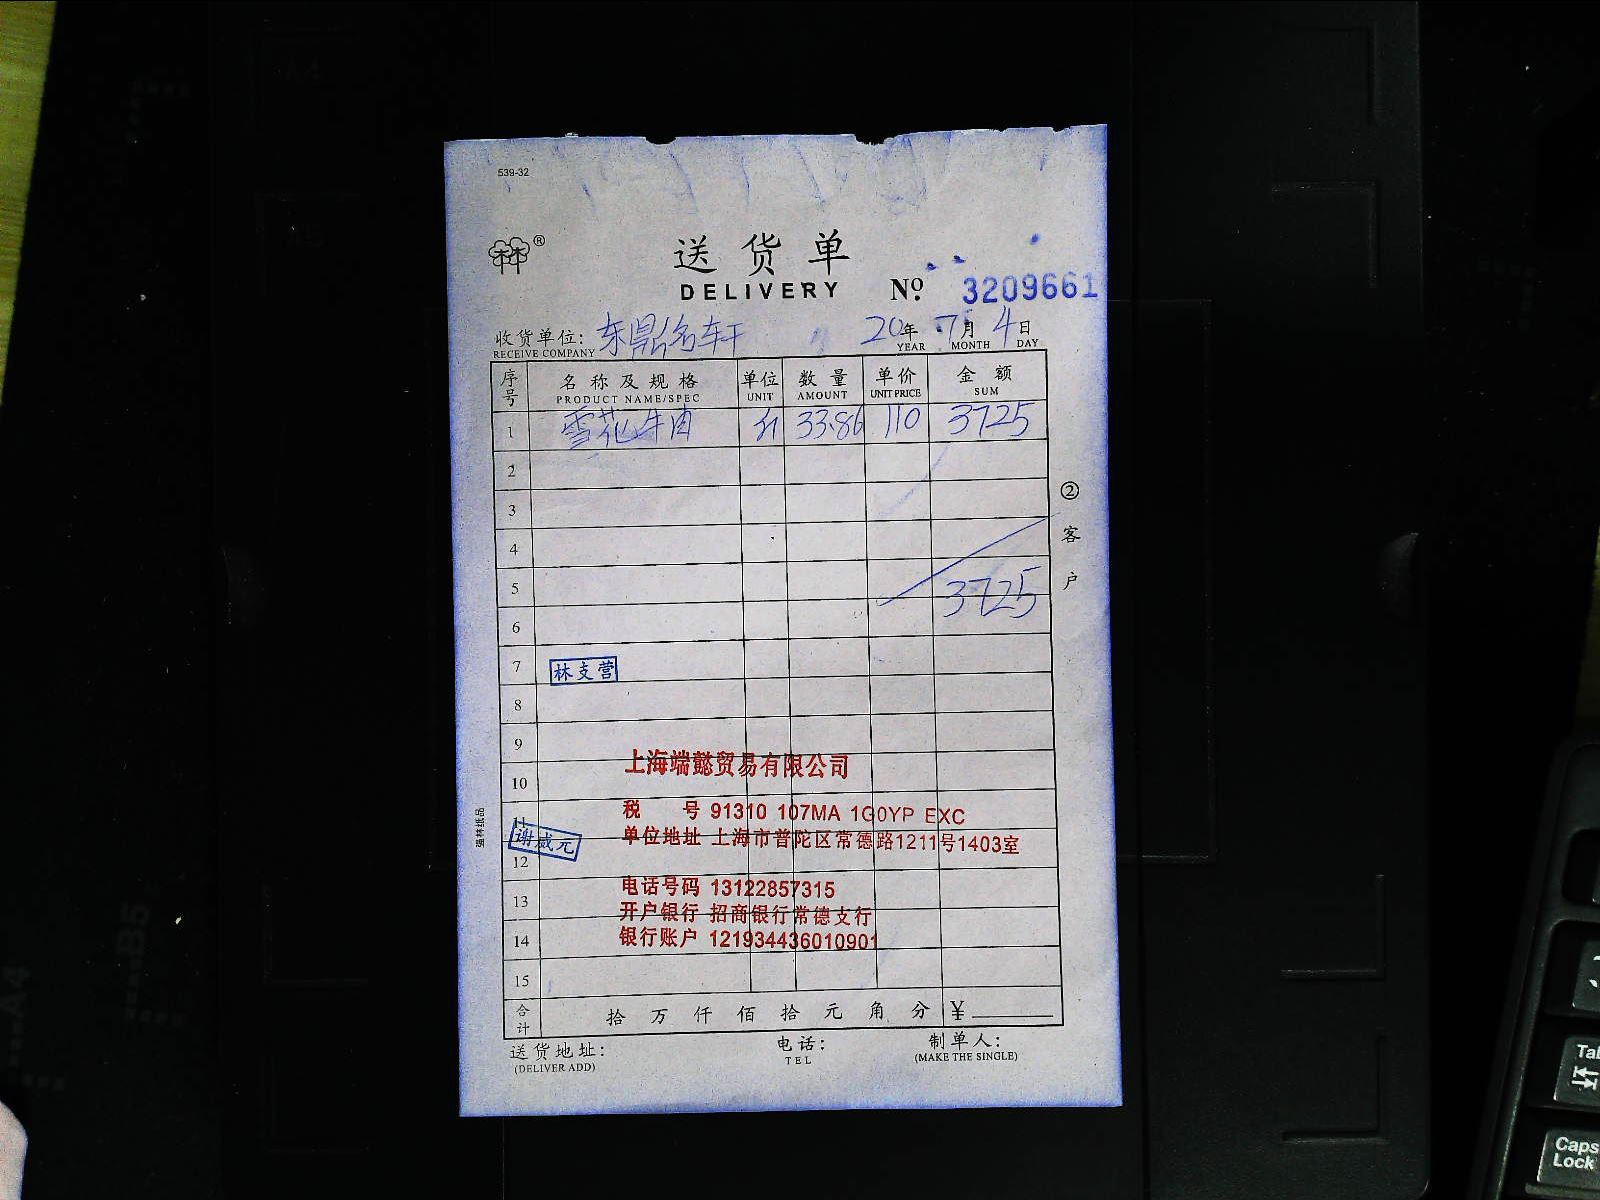 539-32
林林®
送货单
DELIVERY
№ 3209661
收货单位: 东鼎名轩 20年 7月 4日
RECEIVE COMPANY YEAR MONTH DAY
序号 名称及规格 单位 数量 单价 金额
PRODUCT NAME/SPEC UNIT AMOUNT UNIT PRICE SUM
1 雪花牛肉 斤 33.86 110 3725
2
3
4
5 3725
6
7 林支营
8
9
上海端懿贸易有限公司
10
11 税 号 91310 107MA 1G0YP EXC
单位地址 上海市普陀区常德路1211号1403室
谢咸元
12
电话号码 13122857315
13
开户银行 招商银行常德支行
14 银行账户 121934436010901
15
合计 拾 万 仟 佰 拾 元 角 分 ¥
送货地址: 电话: 制单人:
(DELIVER ADD) TEL (MAKE THE SINGLE)
②客户
强林纸品
A4
B5
Tab
Caps Lock